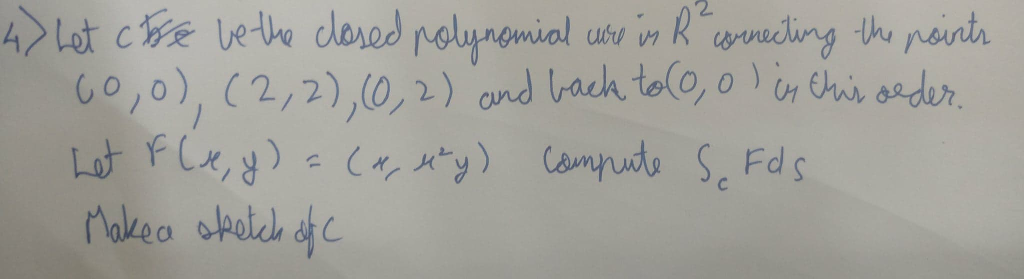 4) Let C be the closed polynomial curve in R² connecting the points
(0,0), (2,2), (0,2) and back to (0,0) in this order.
Let F(x,y) = (x, x²y) Compute S_c Fds
Make a sketch of C